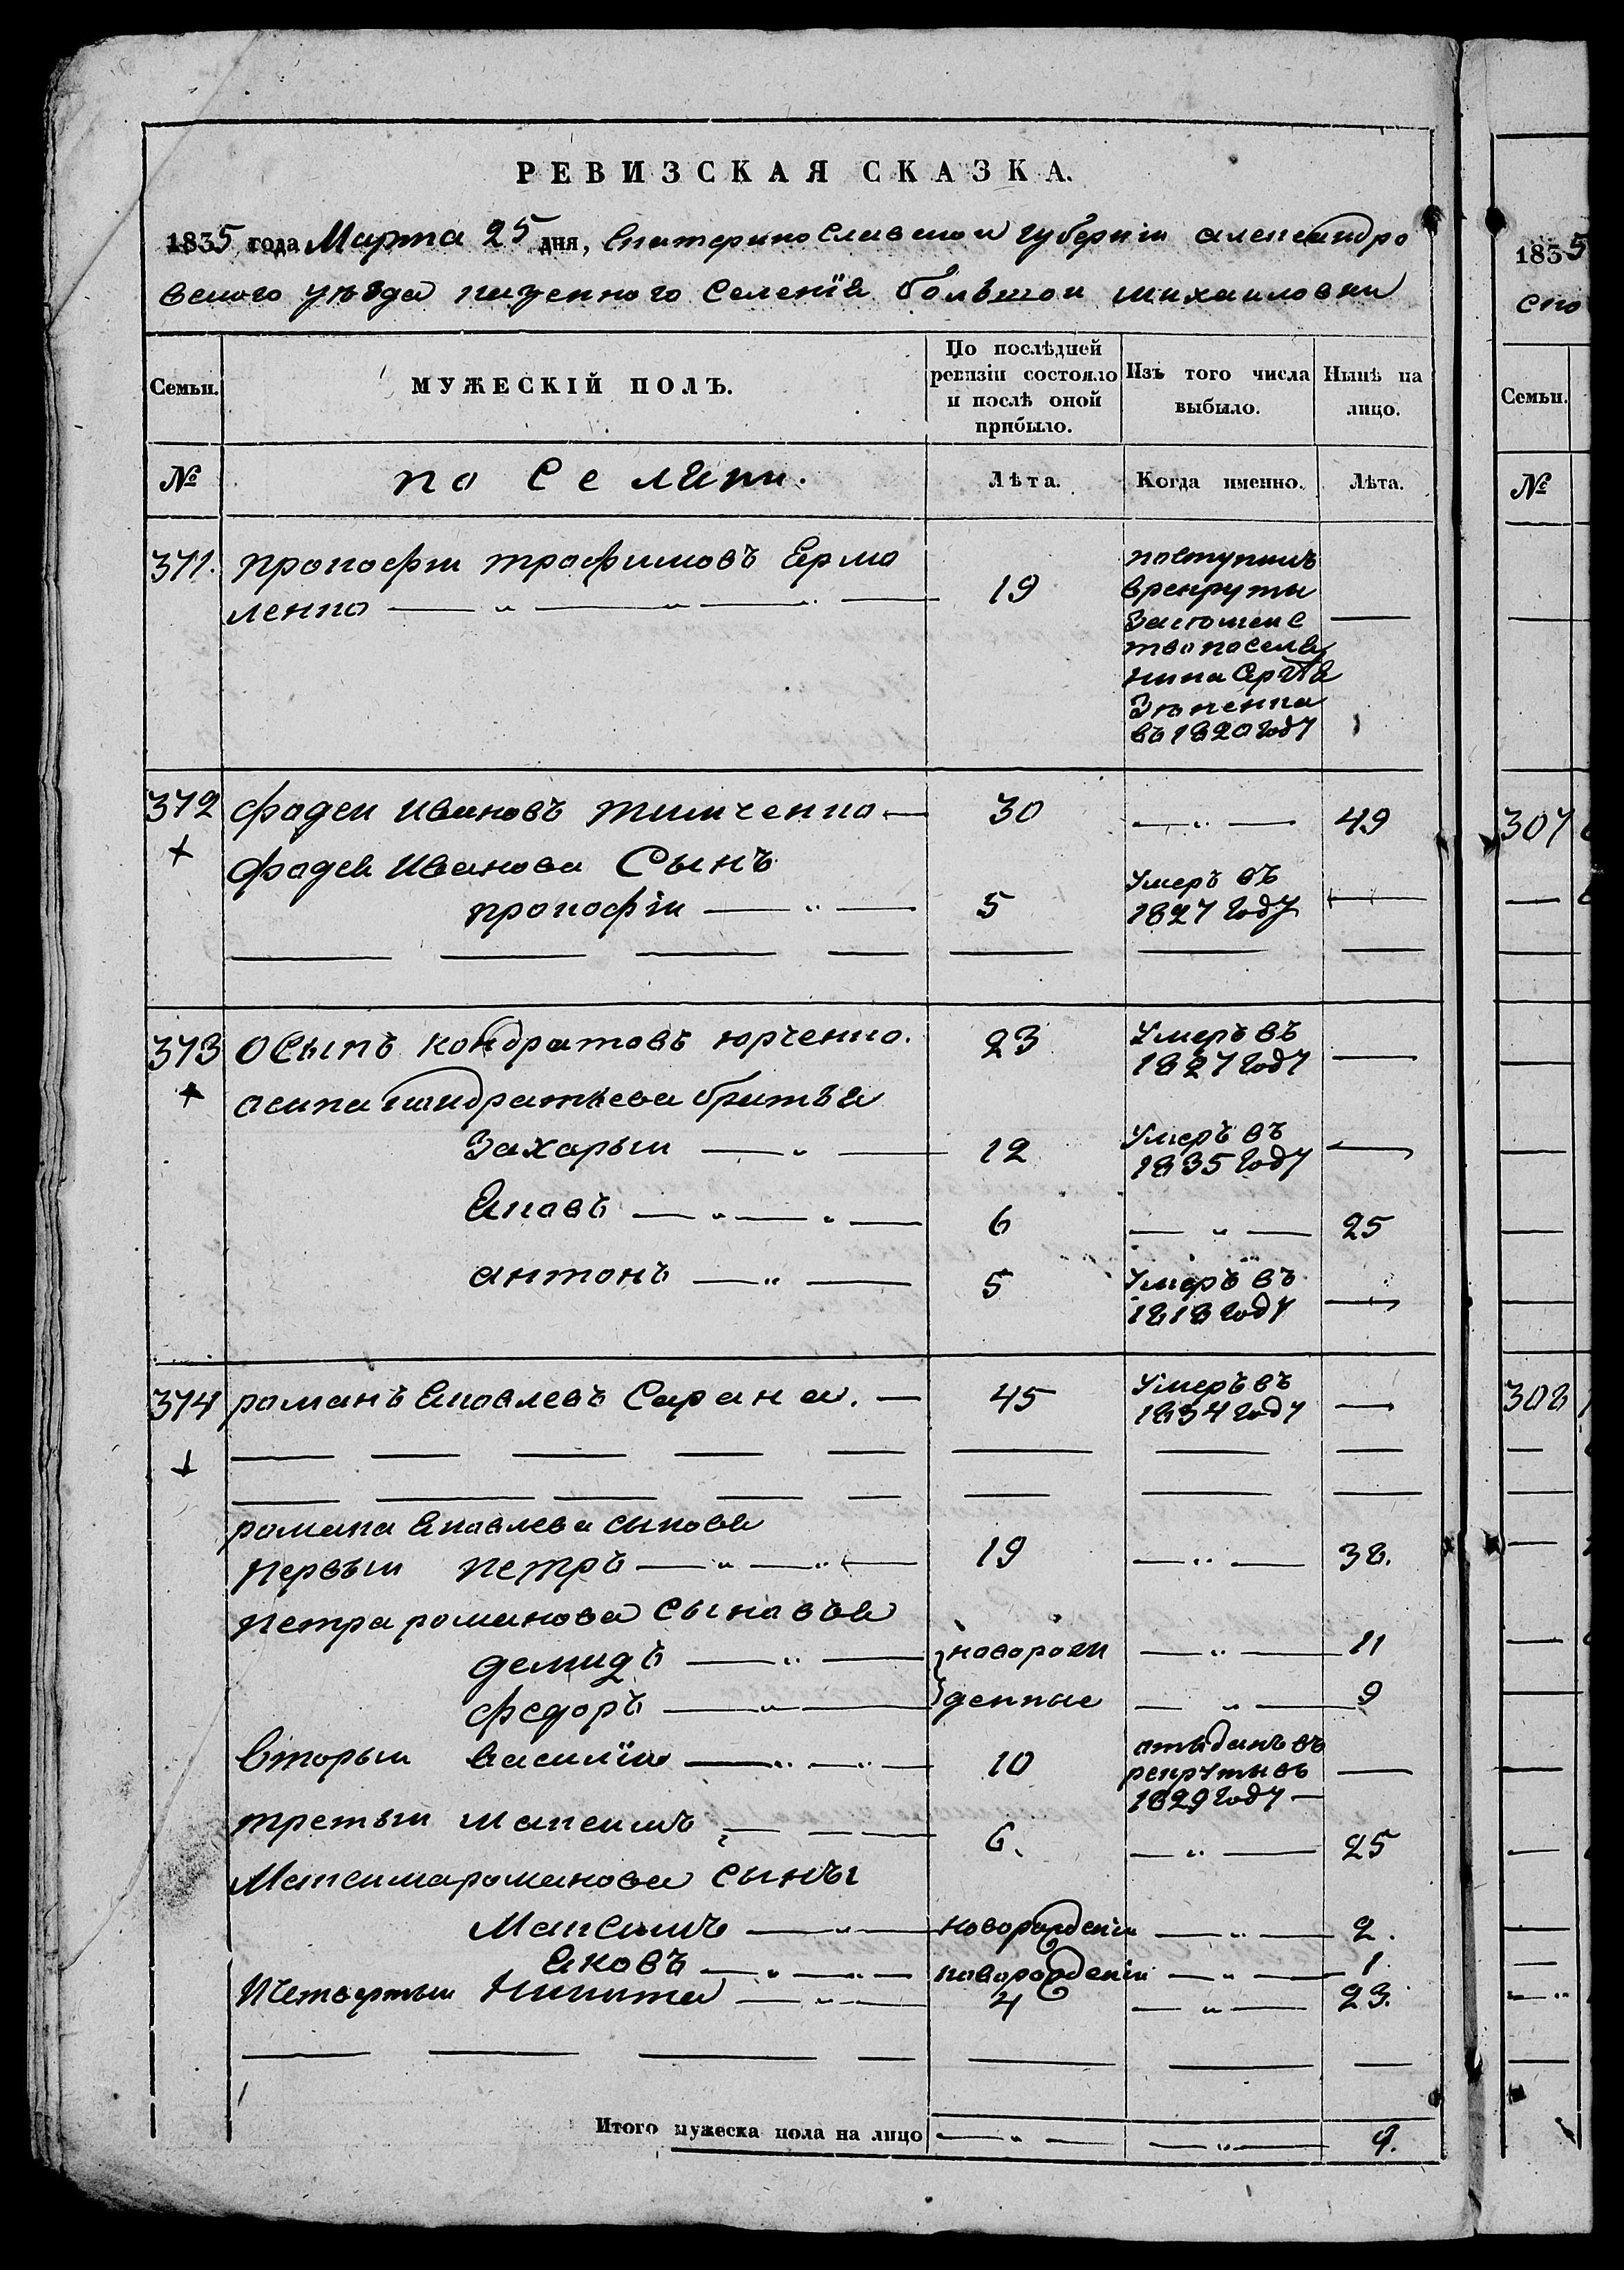 РЕВИЗСКАЯ СКАЗКА.
1835 года Марта 25 дня, Екатеринославской губерніи александро
вского уѣзда казенного Селенія большой михаиловки
Семьи.
МУЖЕСКІЙ ПОЛЪ.
По послѣдней
ревизіи состояло
и послѣ оной
прибыло.
Изъ того числа
выбыло.
Нынѣ на
лицо.
№
Лѣта.
Когда именно.
Лѣта.
371. прокофіи трофимовъ Ермо
ленко
19
поступилъ
врекруты
въ 1820 году
372 фадеи ивановъ тимченко 30 49
фадея Иванова Сынъ
прокофіи 5
Умеръ въ
1827 году
373 Осыпъ кондратовъ юрченко. 23
Умеръ въ
1827 году
осипа кондратьева братья
Захарыи 12
Умеръ въ
1835 году
Яковъ 6 25
антонъ 5
Умеръ въ
1818 году
374 романъ Яковлевъ Сарана. 45
Умеръ въ
1834 году
романа Яковлева сынове
первыи петръ 19 38.
петра романова Сыновья
демидъ новорож 11
федоръ денные 9
вторыи василіи 10
отъданъ въ
рекруты въ
1829 году
третыи максимъ 6. 25
Максима романова сыны
Максимъ новорожденіи 2.
Яковъ новорожденіи 1
Четвертыи Никита 4 23.
Итого мужеска пола на лицо 9.
1835
Семьи.
№
307
308